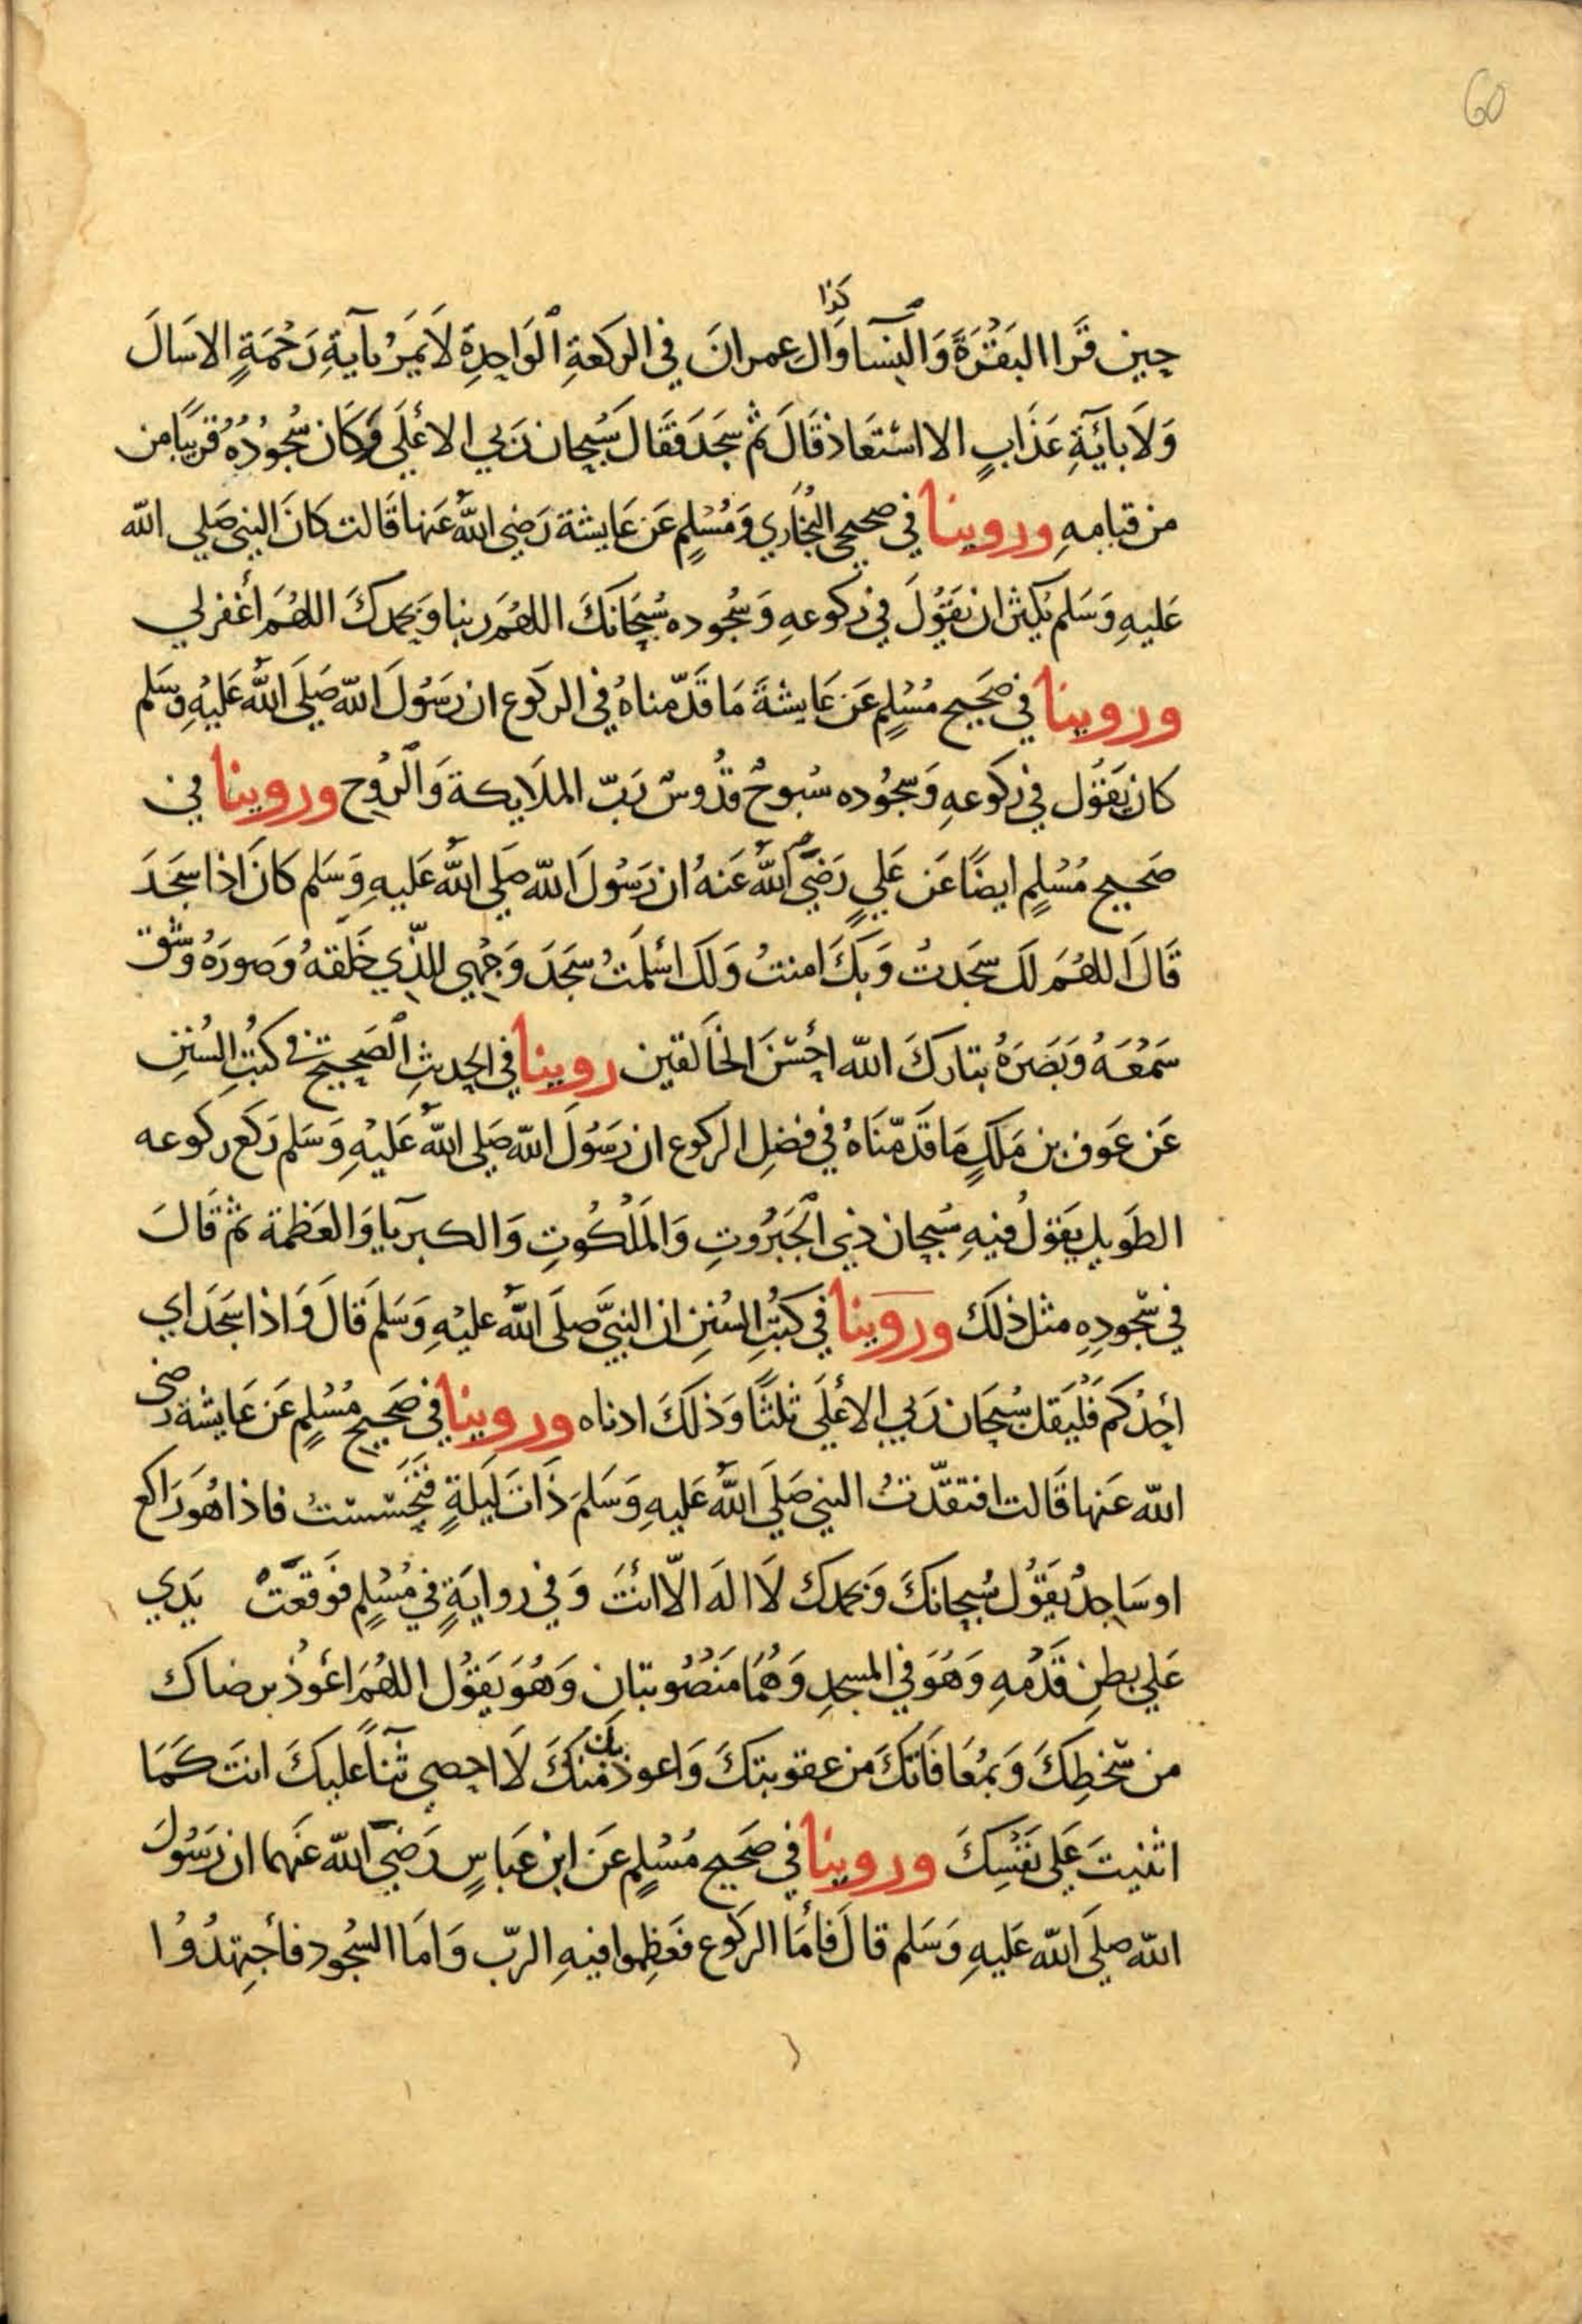 60
كذا
حين قَرا البَقَرَةَ وَالنِسَا وَالِ عمرانَ في الركعَةِ الوَاحِدِةَ لَا يَمَرُ بآيَةِ رَحْمَةٍ الا سَالَ
وَلَا بآيَةِ عَذَابٍ الا اسْتَعَاذ قَالَ ثم سَجَدَ فَقَالَ سُبحان رَبي الاعْلَي وَكَان سُجُودُهُ قريبًا من
من قيامِهِ وروينا في صحيحي البُخَاري وَمُسْلِمٍ عَن عَايشة رَضِي اللهُ عَنها قَالت كانَ النبي صَلي الله
عَليهِ وَسَلم يُكثر ان يَقُولَ في رُكوعهِ وَسُجوده سُبحَانَكَ اللهُمَ ربنا وَبحمدكَ اللهُمَ اغْفر لي
وروينا في صَحيح مُسْلِمٍ عَن عَايشَةَ مَا قَدّمناهُ في الركوع ان رَسُولَ الله صَلَي اللهُ عَليْهِ وَسَلم
كان يَقُول في ركوعهِ وَسجُوده سُبوحٌ قدُوسٌ رَبّ الملَايكة وَالرُوح وروينا في
صَحيح مُسْلِمٍ ايضًا عَن عَلي رَضِيَ اللهُ عَنهُ ان رَسُولَ الله صَلي اللهُ عَليهِ وَسَلم كانَ اذا سَجَدَ
قَالَ اللهُمَ لَكَ سَجَدتُ وَبكَ امنتُ وَلَكَ اسْلَمتُ سَجَدَ وَجْهِي للذّي خَلَقهُ وَصورَهُ وَشق
سَمْعَهُ وَبَصَرَهُ تبَارَكَ الله احْسَنَ الخَالقين روينا في الحديثِ الصَحيحِ في كتُبِ السُننِ
عَن عَوف بن مَلكٍ مَا قَدّمنَاهُ في فضلِ الركوع ان رَسُولَ الله صَلي اللهُ عَليْهِ وَسَلم رَكَع ركوعه
الطَويل يَقولُ فيهِ سُبحان ذي الجَبَرُوتِ وَالمَلَكُوتِ وَالكبريا وَالعَظمة ثم قَالَ
في سُجُودِهِ مثل ذلكَ وروينا في كتُبِ السُننِ ان النبيَّ صَلَي اللهُ عليهِ وَسَلمَ قَالَ وَاذا سَجَدَ اي
احدُكم فَليَقل سُبحَان رَبي الاعْلَي ثلثًا وَذلكَ ادناه وروينا في صَحيح مُسْلِمٍ عَن عَايشة رضى
الله عَنها قَالت افتقدّتُ النبي صَلَي اللهُ عَليهِ وَسَلمَ ذَاتَ لَيلَةٍ فَتَحَسّسْتُ فاذا هُوَ رَاكع
او سَاجدٌ يَقُولُ سُبحانكَ وَبحمدك لَا الهَ الّا انْتَ وَفي روايَةٍ في مُسْلِمٍ فَوَقَعَتْ يَدي
عَلي بطنِ قَدَمهِ وَهُوَ في المسجدِ وَهُمَا مَنصُوبتان وَهُوَ يَقُولُ اللهُمَ اعُوذُ برضاك
من سَخطِكَ وَبمُعَافَاتكَ من عقوبتكَ وَاعوذ بك منكَ لَا احصي ثَنآً عليكَ انتَ كَمَا
اثنيتَ عَلي نَفْسِكَ وروينا في صَحيح مُسْلِمٍ عَن ابن عَباسٍ رَضِيَ الله عَنهما ان رَسُولَ
الله صلَي الله عَليهِ وَسَلم قالَ فَأمَا الركَوع فَعَظِموا فيهِ الربّ وَامَا السُجُود فأجتهِدُوا